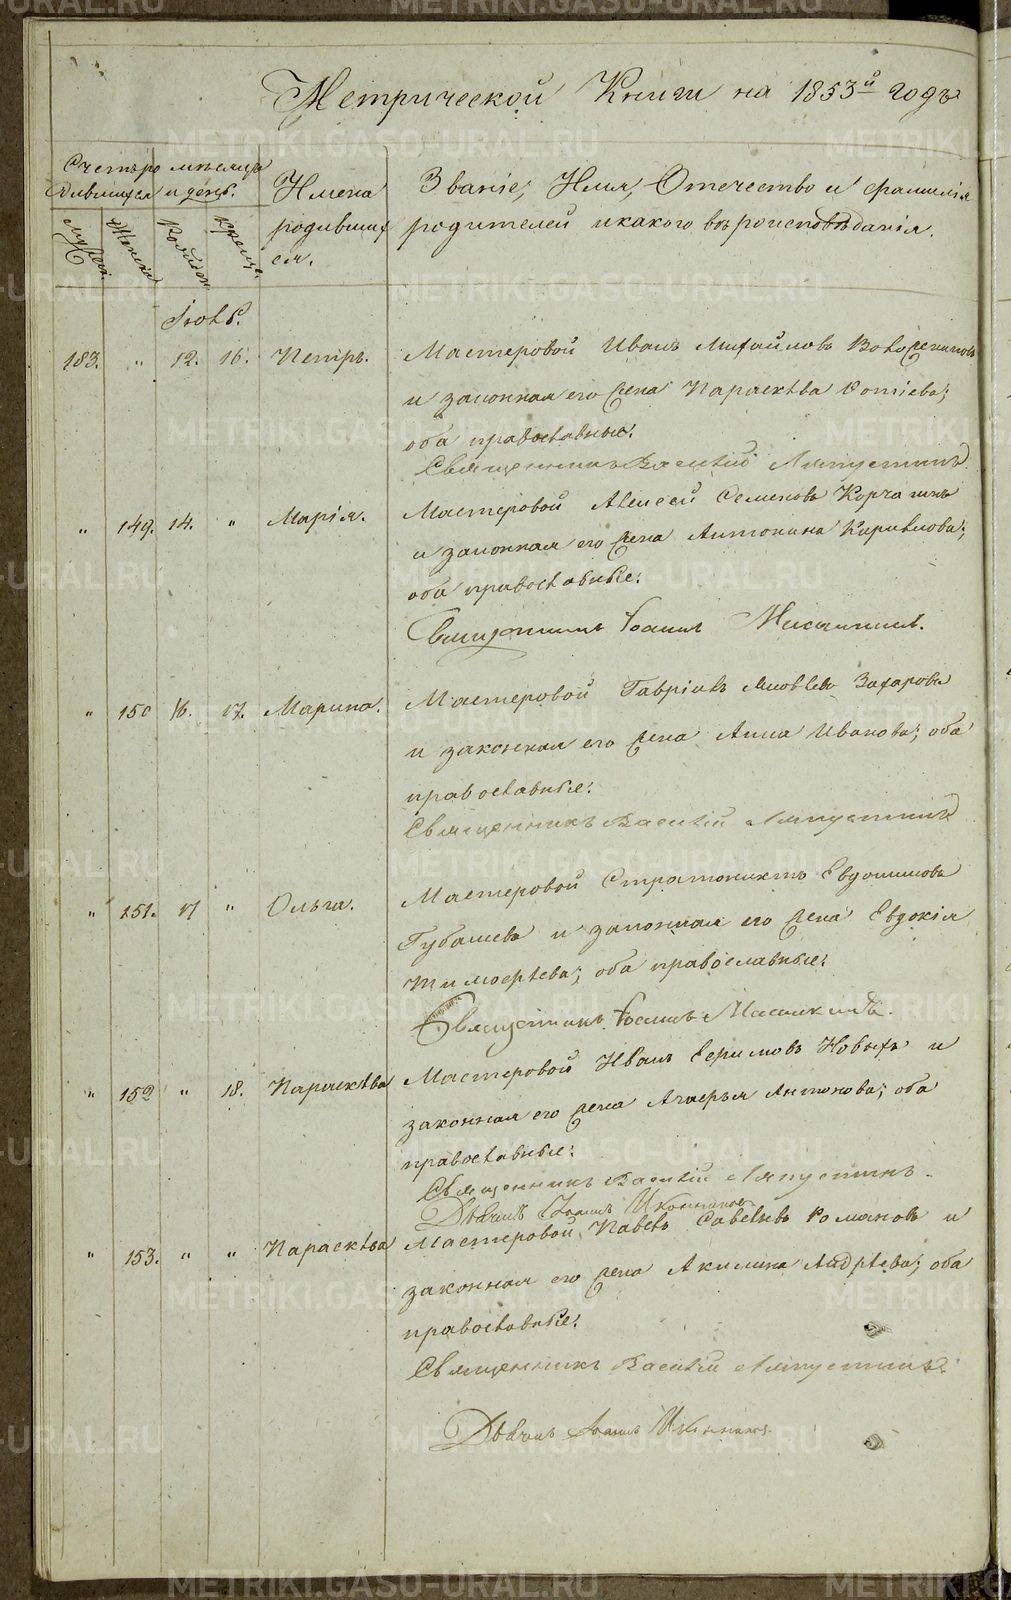 Метрической Книги на 1853й годъ
Счетъ ро
дившихся
мѣсяцъ
и день.
Имена
родивших
ся.
Званіе, Имя, Отечество и фамилія
родителей и какого вѣроисповѣданія.
Мужск.
Женск.
Рожден.
Крещен.
Іюль.
183. " 12. 16. Петръ. Мастеровой Иванъ Михайловъ
и законная его жена Параскѣва Фотіева;
оба православные.
Священникъ Василій Ляпустинъ
" 149. 14. " Марія. Мастеровой Алексѣй Семеновъ Корчагинъ
и законная его жена Антонина Кирилова;
оба православные.
Священникъ Іоаннъ
" 150 16. 17. Марина. Мастеровой Гавріилъ Яковлевъ Захаровъ
и законная его жена Анна Иванова; оба
православные.
Священникъ Василій Ляпустинъ
" 151. 17 " Ольга. Мастеровой Стратоникъ Евдокимовъ
Губашевъ и законная его жена Евдокія
Тимофѣева; оба православные.
Священникъ Іоаннъ
" 152 " 18. Параскѣва Мастеровой Иванъ Ефимовъ Новыхъ и
законная его жена Агафья Антонова; оба
православные.
Священникъ Василій Ляпустинъ.
Дьячекъ Іоаннъ Иконниковъ
" 153. " " Параскѣва Мастеровой Павелъ Савельевъ Романовъ и
законная его жена Акилина Андрѣева; оба
православные.
Священникъ Василій Ляпустинъ
Дьячекъ Іоаннъ Иконниковъ